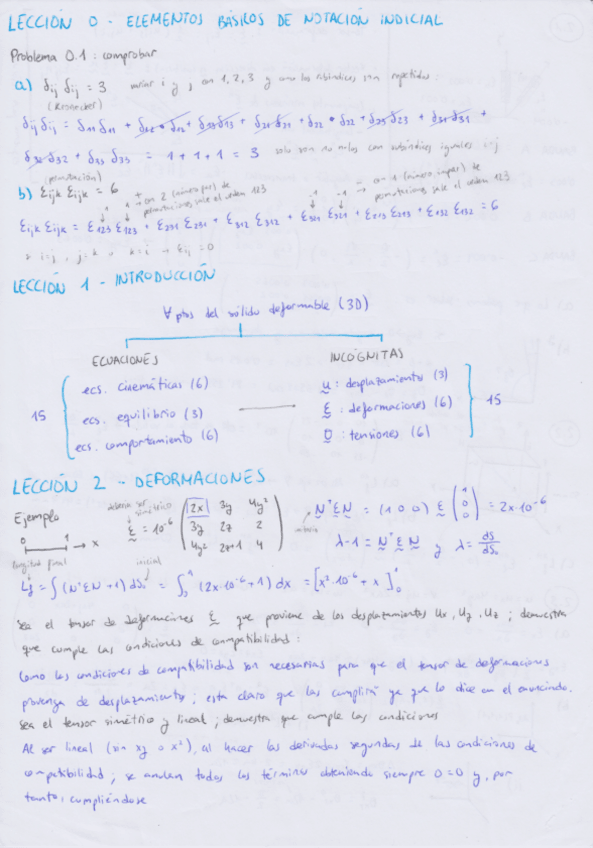 LECCIÓN 0 - ELEMENTOS BÁSICOS DE NOTACIÓN INDICIAL
Problema 0.1 : comprobar
a) δij δij = 3 variar i y j con 1, 2, 3 y como los subíndices son repetidos:
(Kronecker)
δij δij = δ11 δ11 + δ12 δ12 + δ13 δ13 + δ21 δ21 + δ22 δ22 + δ23 δ23 + δ31 δ31 +
δ32 δ32 + δ33 δ33 = 1 + 1 + 1 = 3 solo son no nulos con subíndices iguales i=j
(permutación)
b) εijk εijk = 6 + con 2 (número par) de permutaciones sale el orden 123 - con 1 (número impar) de permutaciones sale el orden 123
εijk εijk = ε123 ε123 + ε231 ε231 + ε312 ε312 + ε321 ε321 + ε213 ε213 + ε132 ε132 = 6
i=j , j=k k=i → εij = 0
LECCIÓN 1 - INTRODUCCIÓN
∀ ptos del sólido deformable (3D)
ECUACIONES
INCÓGNITAS
15
ecs. cinemáticas (6)
ecs. equilibrio (3)
ecs. comportamiento (6)
u : desplazamiento (3)
ε : deformaciones (6)
σ : tensiones (6)
15
LECCIÓN 2 - DEFORMACIONES
Ejemplo
0 1 → x
debería ser simétrico
ε = 10⁻⁶ (2x 3y 4y² / 3y 2z 2 / 4y² 2z+1 4)
NᵀεN = (1 0 0) ε (1 0 0) = 2x·10⁻⁶
λ-1 = NᵀεN y λ = ds/ds₀
longitud final inicial
Lf = ∫ (NᵀεN + 1) dS₀ = ∫₀¹ (2x·10⁻⁶ + 1) dx = [x²·10⁻⁶ + x]₀¹
Sea el tensor de deformaciones ε que proviene de los desplazamientos Ux, Uy, Uz ; demuestra
que cumple las condiciones de compatibilidad :
Como las condiciones de compatibilidad son necesarias para que el tensor de deformaciones
provenga de desplazamiento; esta claro que las cumplirá ya que lo dice en el enunciado.
Sea el tensor simétrico y lineal ; demuestra que cumple las condiciones
Al ser lineal (sin xy o x²), al hacer las derivadas segundas de las condiciones de
compatibilidad ; se anulan todos los términos obteniendo siempre 0=0 y, por
tanto, cumpliéndose